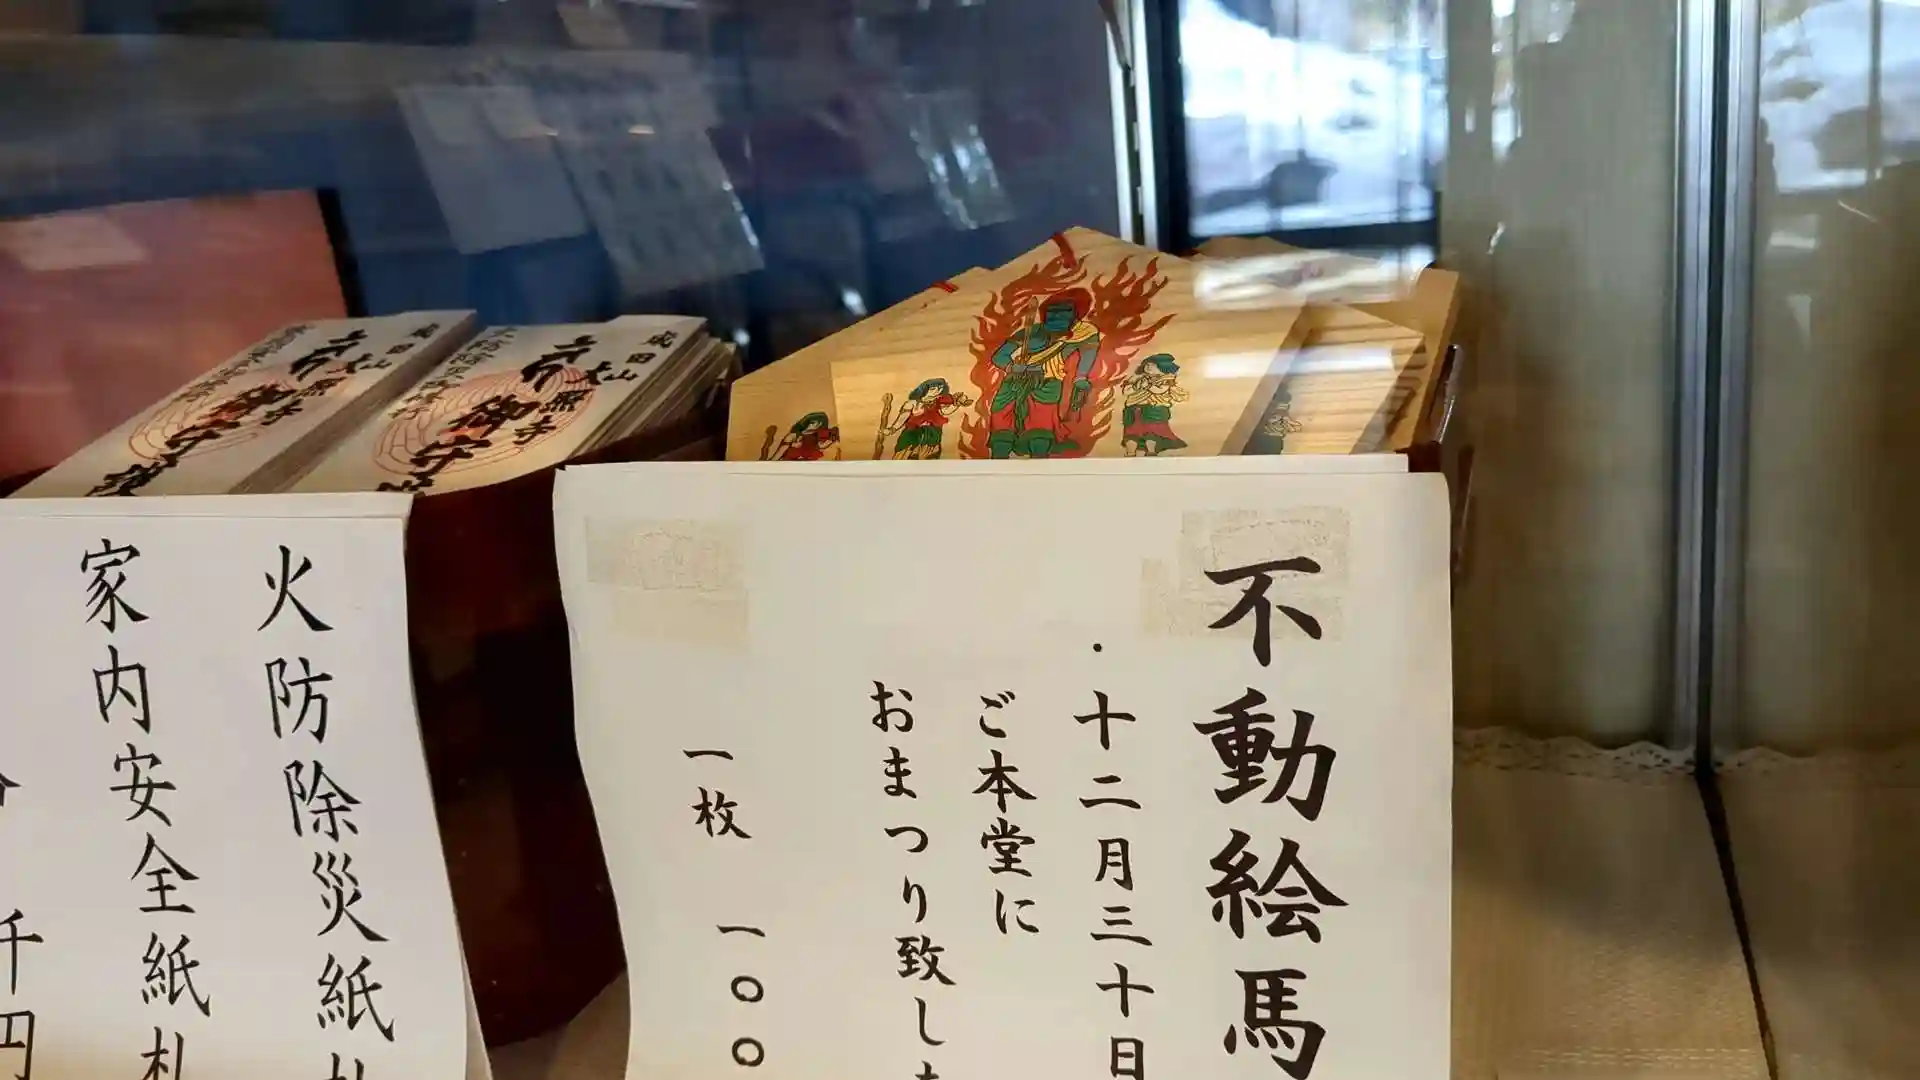 不動絵馬
・十二月三十日
ご本堂に
おまつり致し
一枚 一〇〇
火防除災紙札
家内安全紙札
千円
成田山
御守護
成田山
御守護